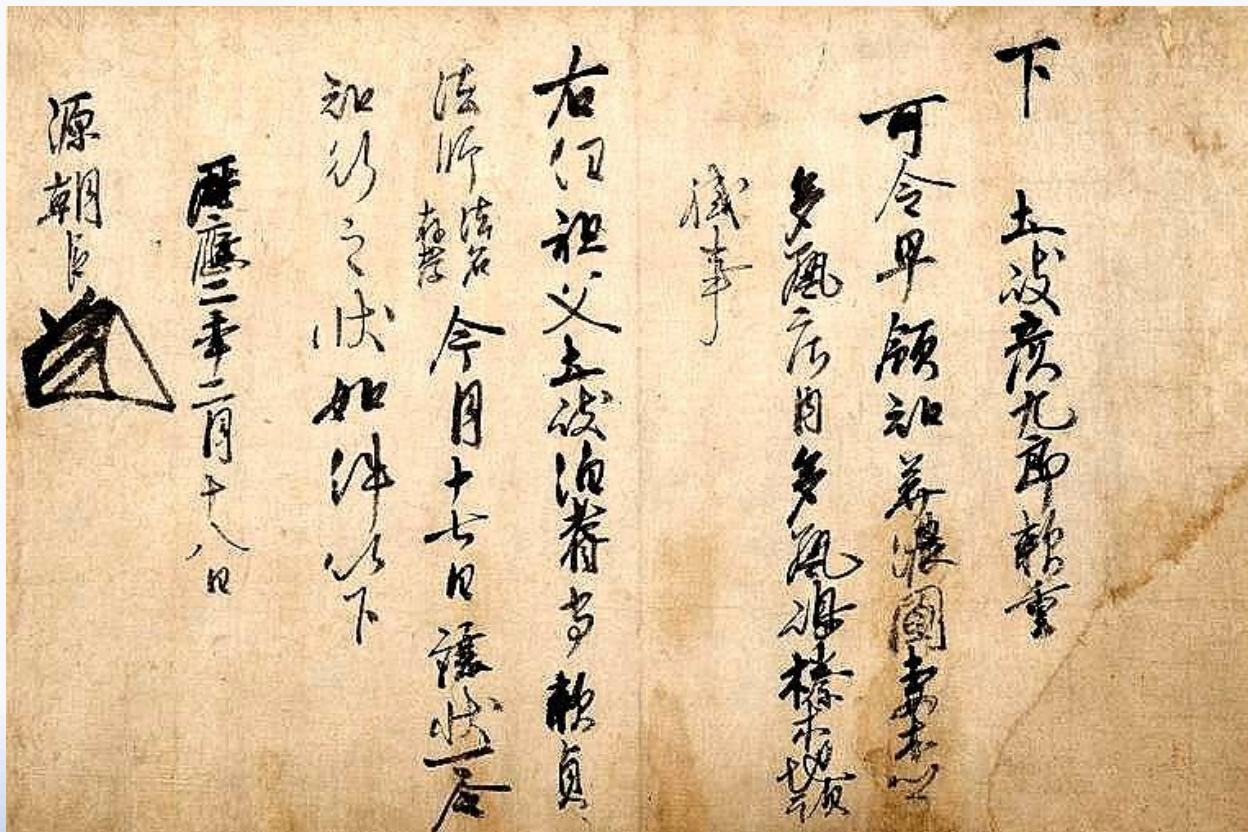 下 土岐彦九郎頼重
可令早領知美濃国妻木郷
多藝庄内多藝嶋榛木郷地頭
職事
右任祖父土岐伯耆守頼貞
法師法名存孝今月十七日譲状可令
知行之状如件以下
暦應二年二月十八日
源朝臣